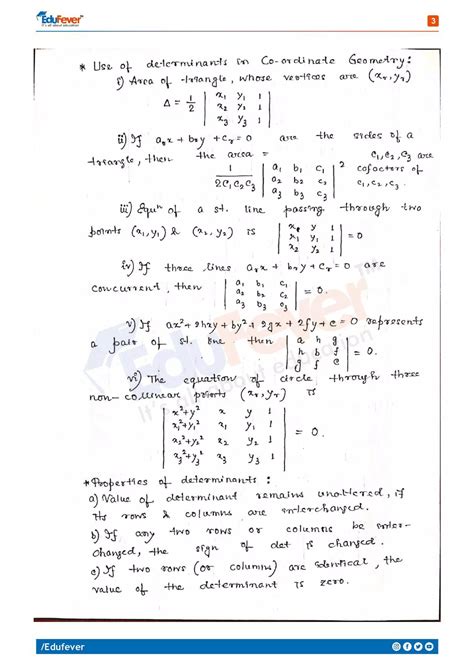 EduFever
It's all about education
3
* Use of determinants in Co-ordinate Geometry:
i) Area of triangle, whose vertices are (xᵣ, yᵣ)
Δ = 1/2 | x₁ y₁ 1 |
| x₂ y₂ 1 |
| x₃ y₃ 1 |
ii) If aᵣx + bᵣy + cᵣ = 0 are the sides of a
triangle, then the area =
1/(2C₁C₂C₃) | a₁ b₁ c₁ |²
| a₂ b₂ c₂ |
| a₃ b₃ c₃ |
C₁, C₂, C₃ are
cofactors of
c₁, c₂, c₃.
iii) Equⁿ of a st. line passing through two
points (x₁, y₁) & (x₂, y₂) is | x y 1 | = 0
| x₁ y₁ 1 |
| x₂ y₂ 1 |
iv) If three lines aᵣx + bᵣy + cᵣ = 0 are
concurrent, then | a₁ b₁ c₁ | = 0
| a₂ b₂ c₂ |
| a₃ b₃ c₃ |
v) If ax² + 2hxy + by² + 2gx + 2fy + c = 0 represents
a pair of st. line then | a h g | = 0.
| h b f |
| g f c |
vi) The equation of circle through three
non-collinear points (xᵣ, yᵣ) is
| x²+y² x y 1 |
| x₁²+y₁² x₁ y₁ 1 | = 0.
| x₂²+y₂² x₂ y₂ 1 |
| x₃²+y₃² x₃ y₃ 1 |
* Properties of determinants:
a) Value of determinant remains unaltered, if
its rows & columns are interchanged.
b) If any two rows or columns be inter-
changed, the sign of det is changed.
c) If two rows (or columns) are identical, the
value of the determinant is zero.
EduFever
It's all about education
/Edufever